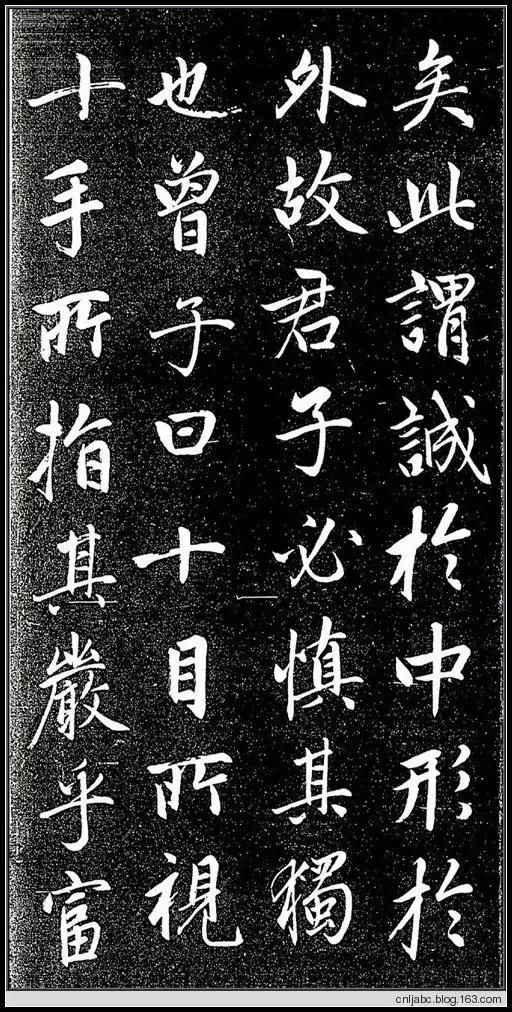 矣此謂誠於中形於
外故君子必慎其獨
也曾子曰十目所視
十手所指其嚴乎富
cnljabc.blog.163.com